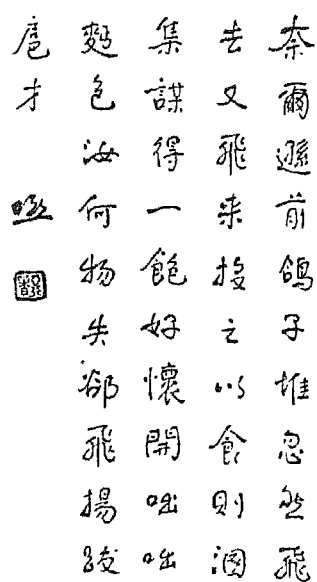 奈爾遜前鴿子堆忽然飛
去又飛来投之以食則洄
集謀得一飽好懷開咄咄
麪包汝何物失卻飛揚跋
扈才